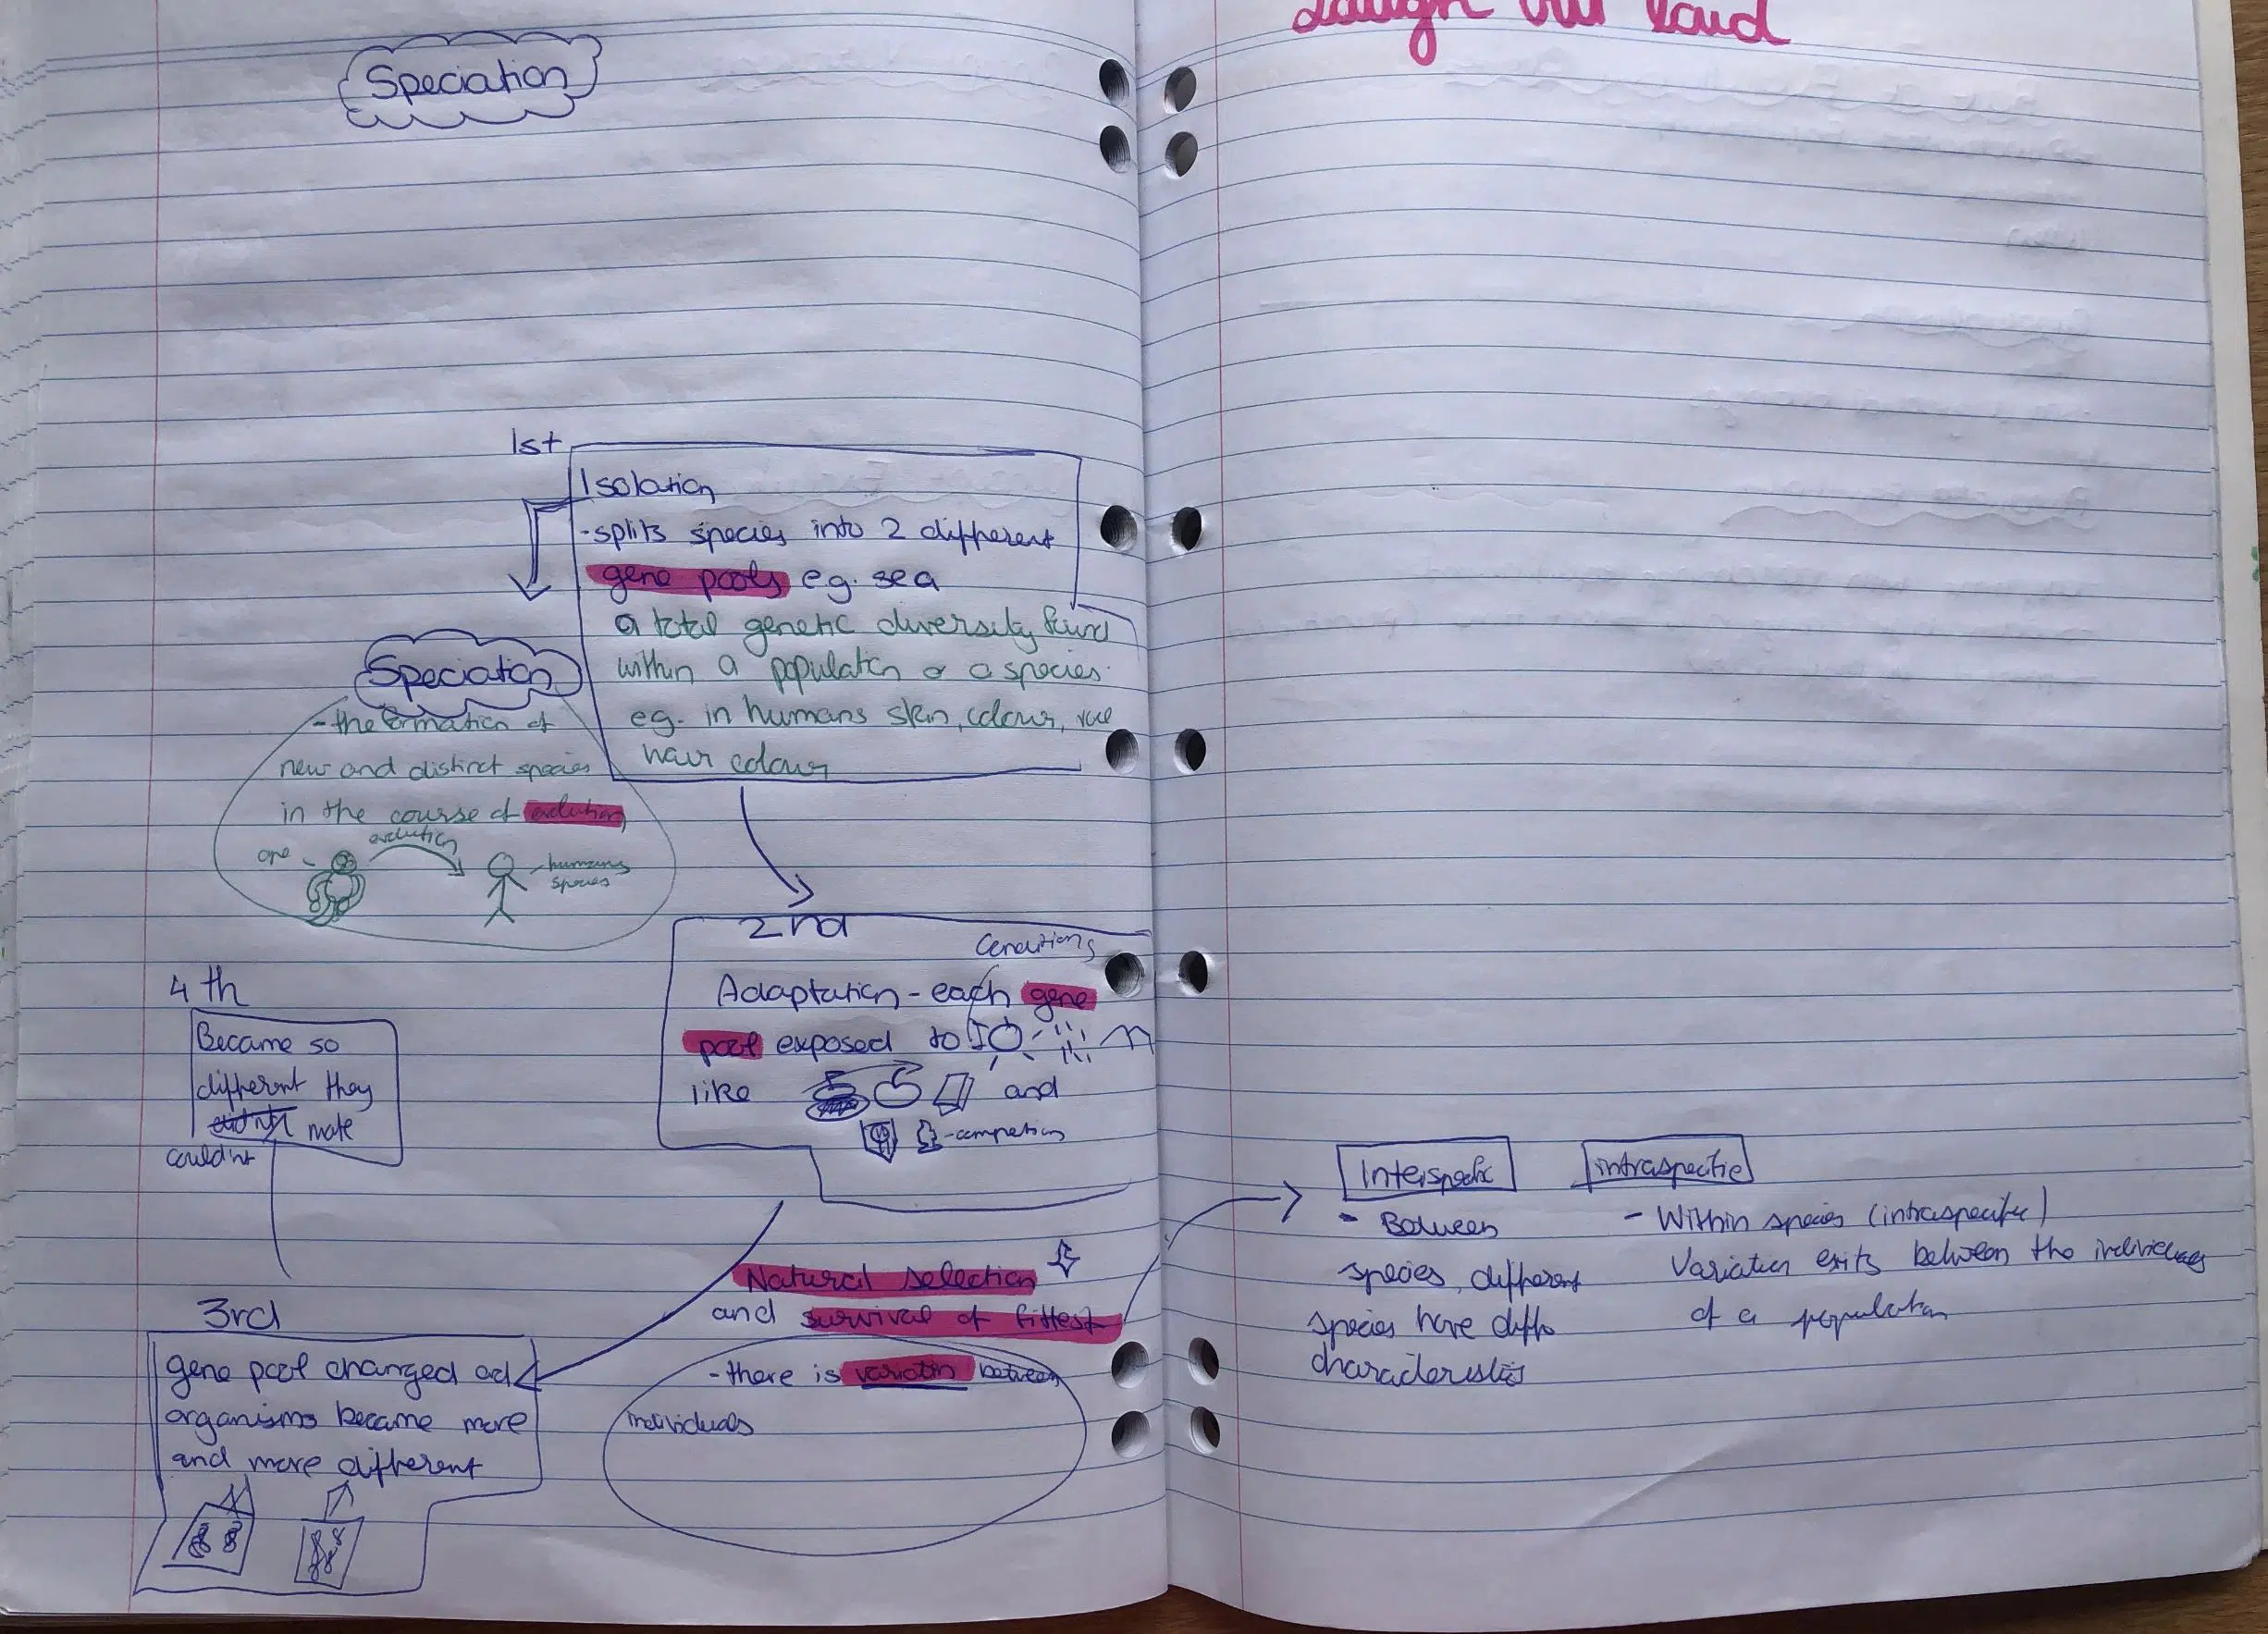 Speciation
laugh out loud
1st
Isolation
-splits species into 2 different
gene pools e.g. sea
a total genetic diversity found
within a population or a species.
eg. in humans skin, colour,
hair colour
Speciation
- the formation of
new and distinct species
in the course of evolution
evolution
ape
humans
species
2nd
conditions
Adaptation - each gene
pool exposed to
like and
-competion
4th
Became so
different they
didn't mate
couldn't
3rd
gene pool changed ad
organisms became more
and more different
Natural selection
and survival of fittest
- there is variation between
individuals
Interspecific
- Between
species, different
species have diff
characteristics
intraspecific
- Within species (intraspecific)
Variation exits between the individuals
of a population